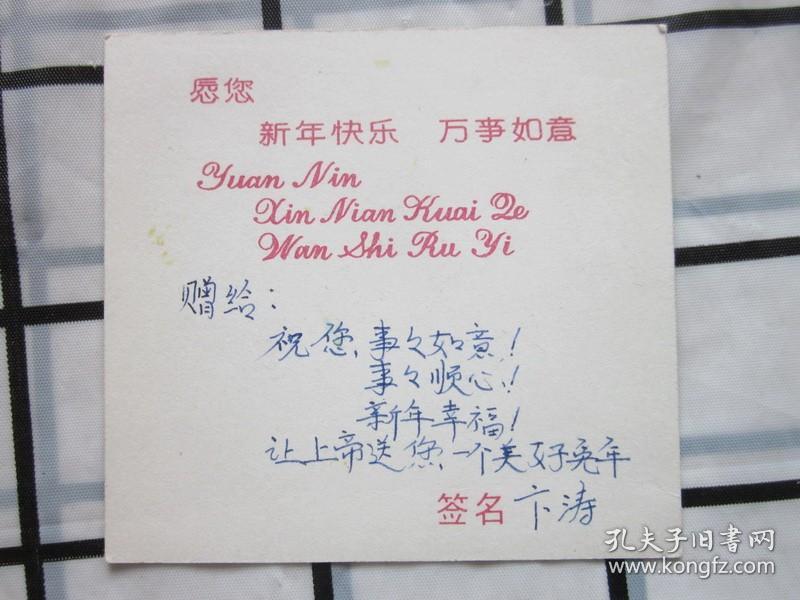 愿您
新年快乐 万事如意
Yuan Nin
Xin Nian Kuai Le
Wan Shi Ru Yi
赠给：
祝您、事々如意！
事々顺心！
新年幸福！
让上帝送您一个美好兔年
签名 卞涛
孔夫子旧书网
www.kongfz.com